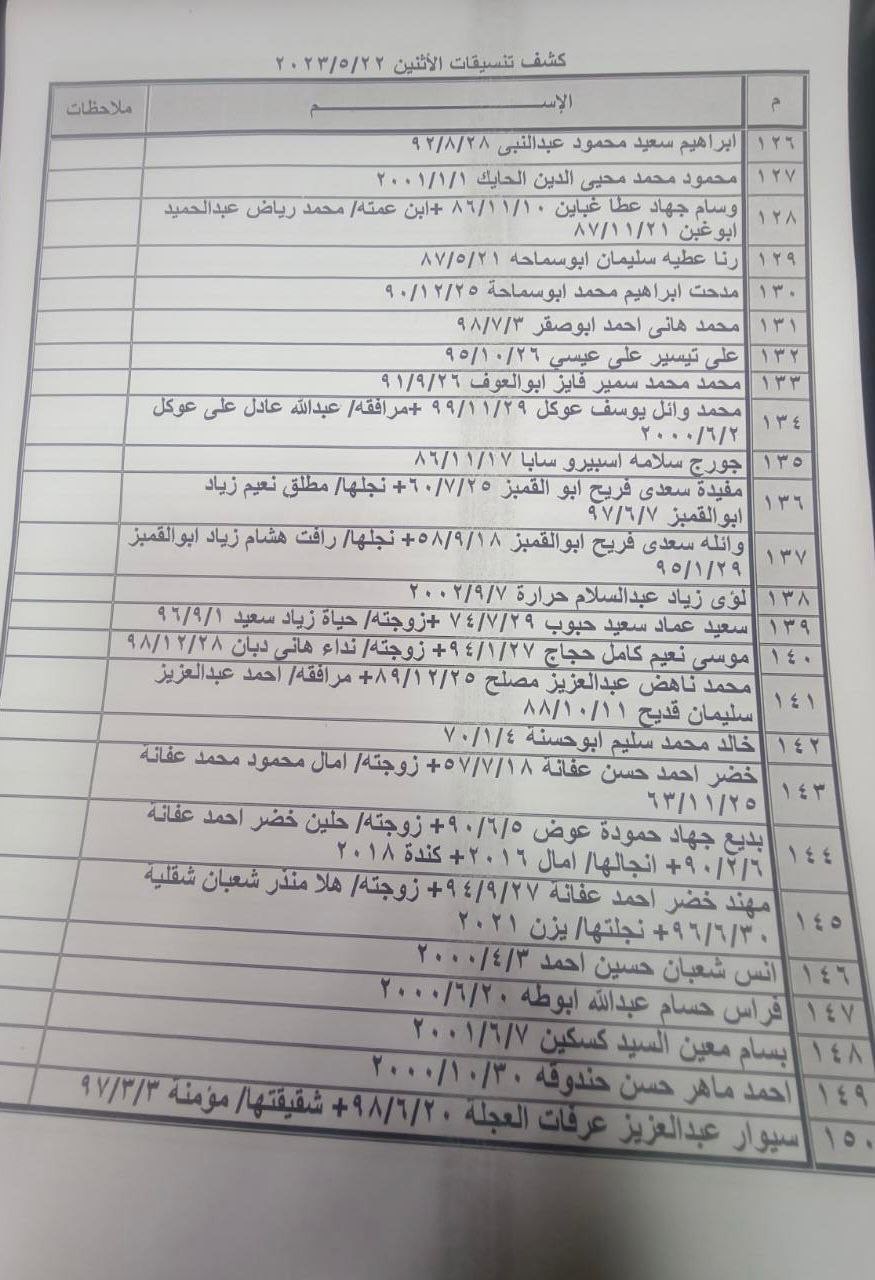 كشف تنسيقات الأثنين ٢٠٢٣/٥/٢٢
م الإســـــــــــــــــــــــم ملاحظات
١٢٦ ابراهيم سعيد محمود عبدالنبى ٩٢/٨/٢٨
١٢٧ محمود محمد محيى الدين الحايك ٢٠٠١/١/١
١٢٨ وسام جهاد عطا غباين ٨٦/١١/١٠ +ابن عمته/ محمد رياض عبدالحميد
ابوغبن ٨٧/١١/٢١
١٢٩ رنا عطيه سليمان ابوسماحه ٨٧/٥/٢١
١٣٠ مدحت ابراهيم محمد ابوسماحة ٩٠/١٢/٢٥
١٣١ محمد هانى احمد ابوصقر ٩٨/٧/٣
١٣٢ على تيسير على عيسي ٩٥/١٠/٢٦
١٣٣ محمد محمد سمير فايز ابوالعوف ٩١/٩/٢٦
١٣٤ محمد وائل يوسف عوكل ٩٩/١١/٢٩ +مرافقه/ عبدالله عادل على عوكل
٢٠٠٠/٦/٢
١٣٥ جورج سلامه اسبيرو سابا ٨٦/١١/١٧
١٣٦ مفيدة سعدى فريح ابو القمبز ٦٠/٧/٢٥+ نجلها/ مطلق نعيم زياد
ابوالقمبز ٩٧/٦/٧
١٣٧ وائله سعدى فريح ابوالقمبز ٥٨/٩/١٨+ نجلها/ رافت هشام زياد ابوالقمبز
٩٥/١/٢٩
١٣٨ لؤى زياد عبدالسلام حرارة ٢٠٠٢/٩/٧
١٣٩ سعيد عماد سعيد حبوب ٧٤/٧/٢٩ +زوجته/ حياة زياد سعيد ٩٦/٩/١
١٤٠ موسى نعيم كامل حجاج ٩٤/١/٢٧+ زوجته/ نداء هانى دبان ٩٨/١٢/٢٨
١٤١ محمد ناهض عبدالعزيز مصلح ٨٩/١٢/٢٥+ مرافقه/ احمد عبدالعزيز
سليمان قديح ٨٨/١٠/١١
١٤٢ خالد محمد سليم ابوحسنة ٧٠/١/٤
١٤٣ خضر احمد حسن عفانة ٥٧/٧/١٨+ زوجته/ امال محمود محمد عفانة
٦٣/١١/٢٥
١٤٤ بديع جهاد حمودة عوض ٩٠/٦/٥+ زوجته/ حلين خضر احمد عفانة
٩٠/٢/٦+ انجالها/ امال ٢٠١٦+ كندة ٢٠١٨
١٤٥ مهند خضر احمد عفانة ٩٤/٩/٢٧+ زوجته/ هلا منذر شعبان شقلية
٩٦/٦/٣٠+ نجلتها/ يزن ٢٠٢١
١٤٦ انس شعبان حسين احمد ٢٠٠٠/٤/٣
١٤٧ فراس حسام عبدالله ابوطه ٢٠٠٠/٦/٢٠
١٤٨ بسام معين السيد كسكين ٢٠٠١/٦/٧
١٤٩ احمد ماهر حسن حندوقه ٢٠٠٠/١٠/٣٠
١٥٠ سيوار عبدالعزيز عرفات العجلة ٩٨/٦/٢٠+ شقيقتها/ مؤمنة ٩٧/٣/٣